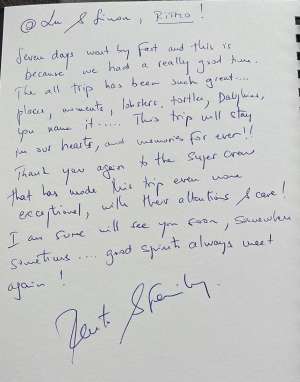 @ Lu & Simon, !
Seven days went by fast and this is
because we had a really good time.
The all trip has been such great....
places, moments, lobsters, tortles, Dolphins,
You name it..... This trip will stay
in our hearts, and memories for ever!!
Thank you again to the Super Crew
that has made this trip even more
exceptional, with their attentions & care!
I am sure will see you soon, somewhere
sometimes.... good spirits always meet
again!
& Family